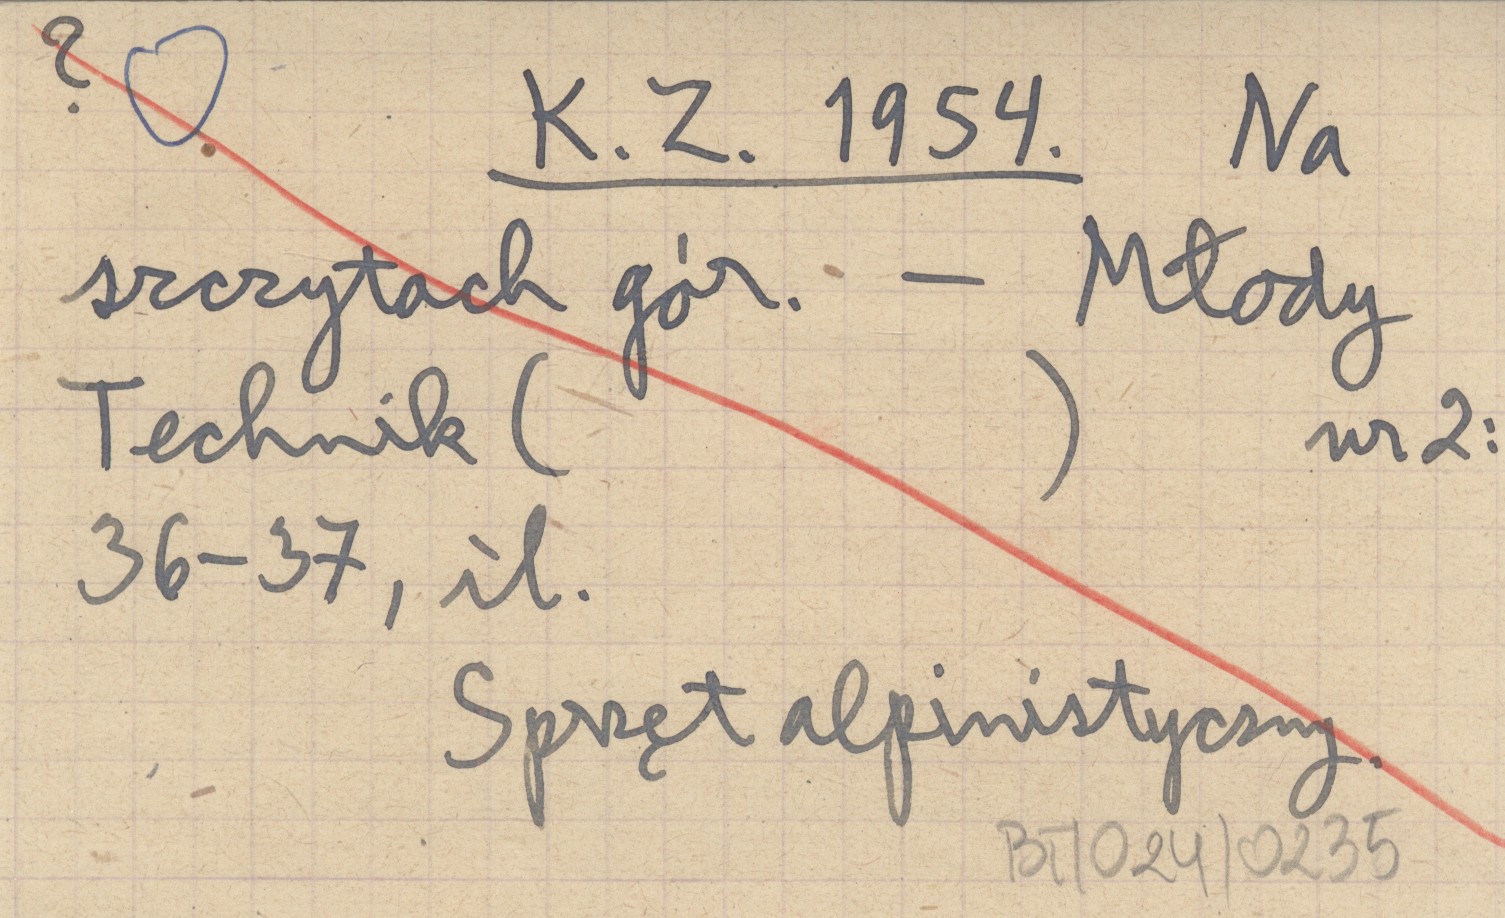 ?
K. Z. 1954. Na
szczytach gór. – Młody
Technik ( ) nr 2:
36–37, il.
Sprzęt alpinistyczny.
BT/024/0235